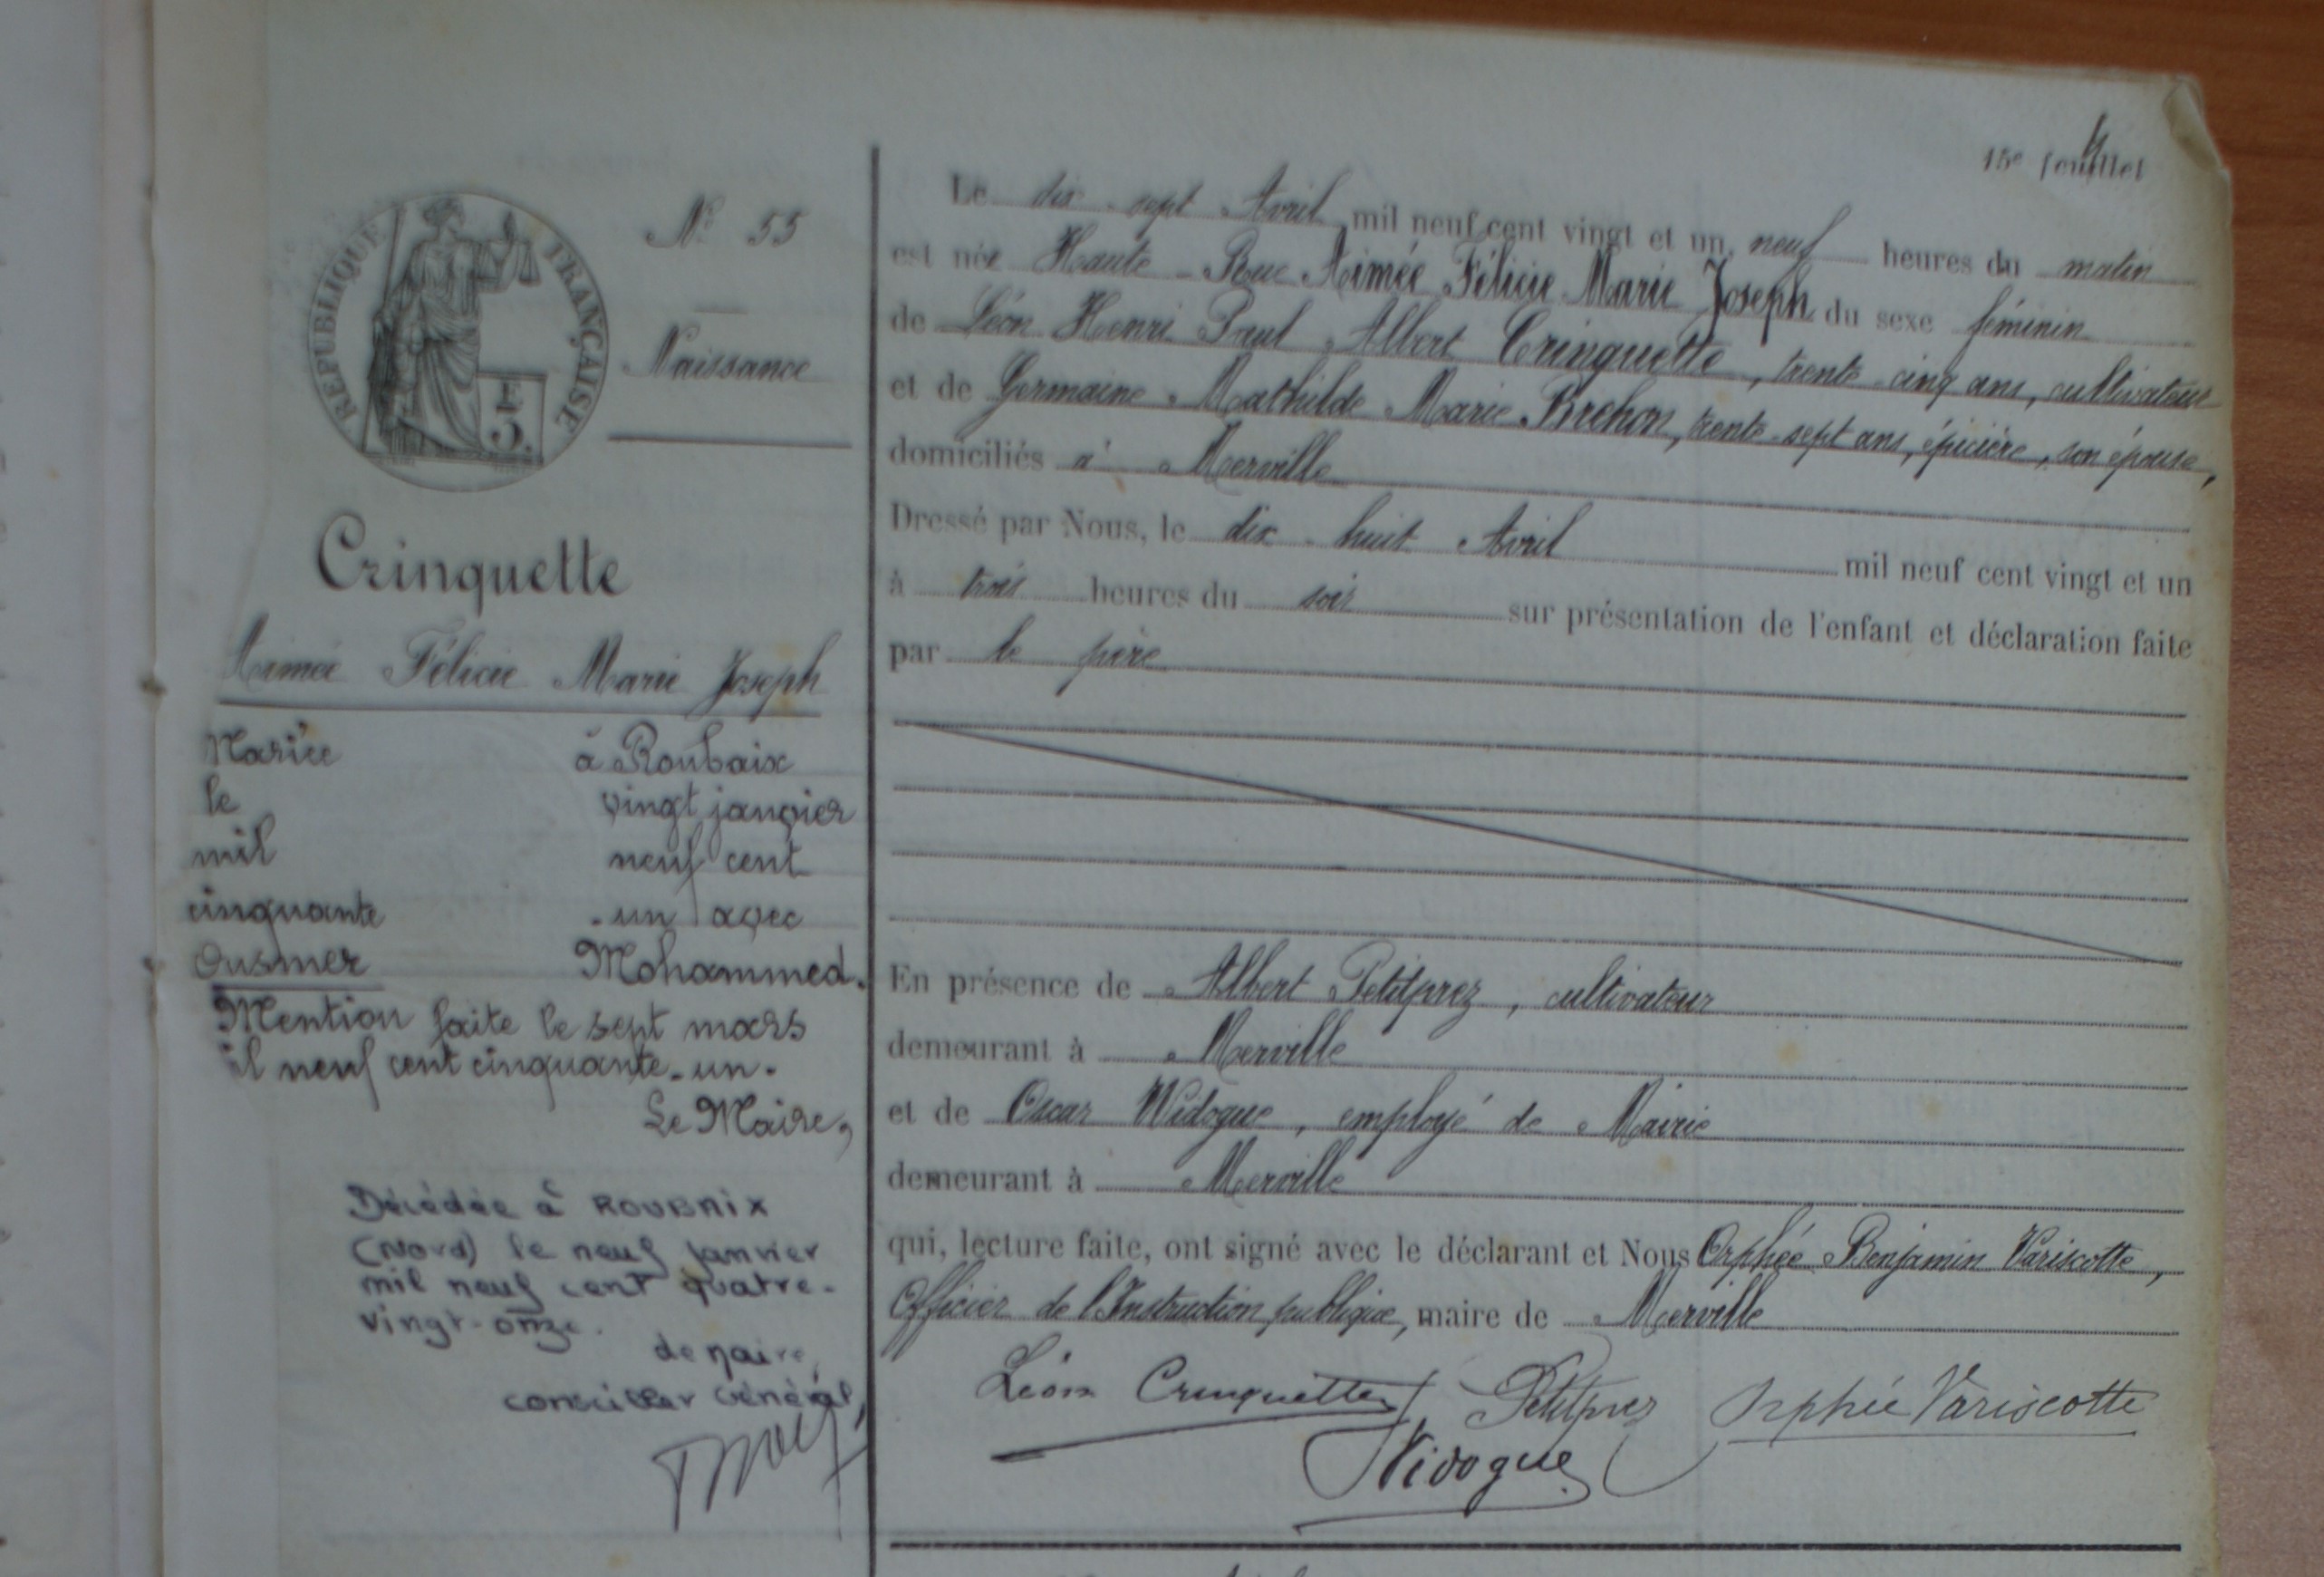 15e feuillet
RÉPUBLIQUE FRANÇAISE
5 F.
N° 55
Naissance
Crinquette
Aimée Félicie Marie Joseph
Mariée à Roubaix
le vingt janvier
mil neuf cent
cinquante-un avec
Ousmer Mohammed.
Mention faite le sept mars
il neuf cent cinquante-un.
Le Maire,
Décédée à ROUBAIX
(Nord) le neuf janvier
mil neuf cent quatre-
vingt-onze.
Conseiller Général,
Le dix-sept Avril mil neuf cent vingt et un, neuf heures du matin
est née Haute-Rue Aimée Félicie Marie Joseph du sexe féminin
de Léon Henri Paul Albert Crinquette, trente-cinq ans, cultivateur
et de Germaine Mathilde Marie Brehon, trente-sept ans, épicière, son épouse,
domiciliés à Merville
Dressé par Nous, le dix-huit Avril mil neuf cent vingt et un
à trois heures du soir sur présentation de l'enfant et déclaration faite
par le père
En présence de Albert Petitprez, cultivateur
demeurant à Merville
et de Oscar Widogue, employé de Mairie
demeurant à Merville
qui, lecture faite, ont signé avec le déclarant et Nous Orphée Benjamin Variscotte,
Officier de l'Instruction publique, maire de Merville
Léon Crinquette Petitprez Orphée Variscotte
Widogue